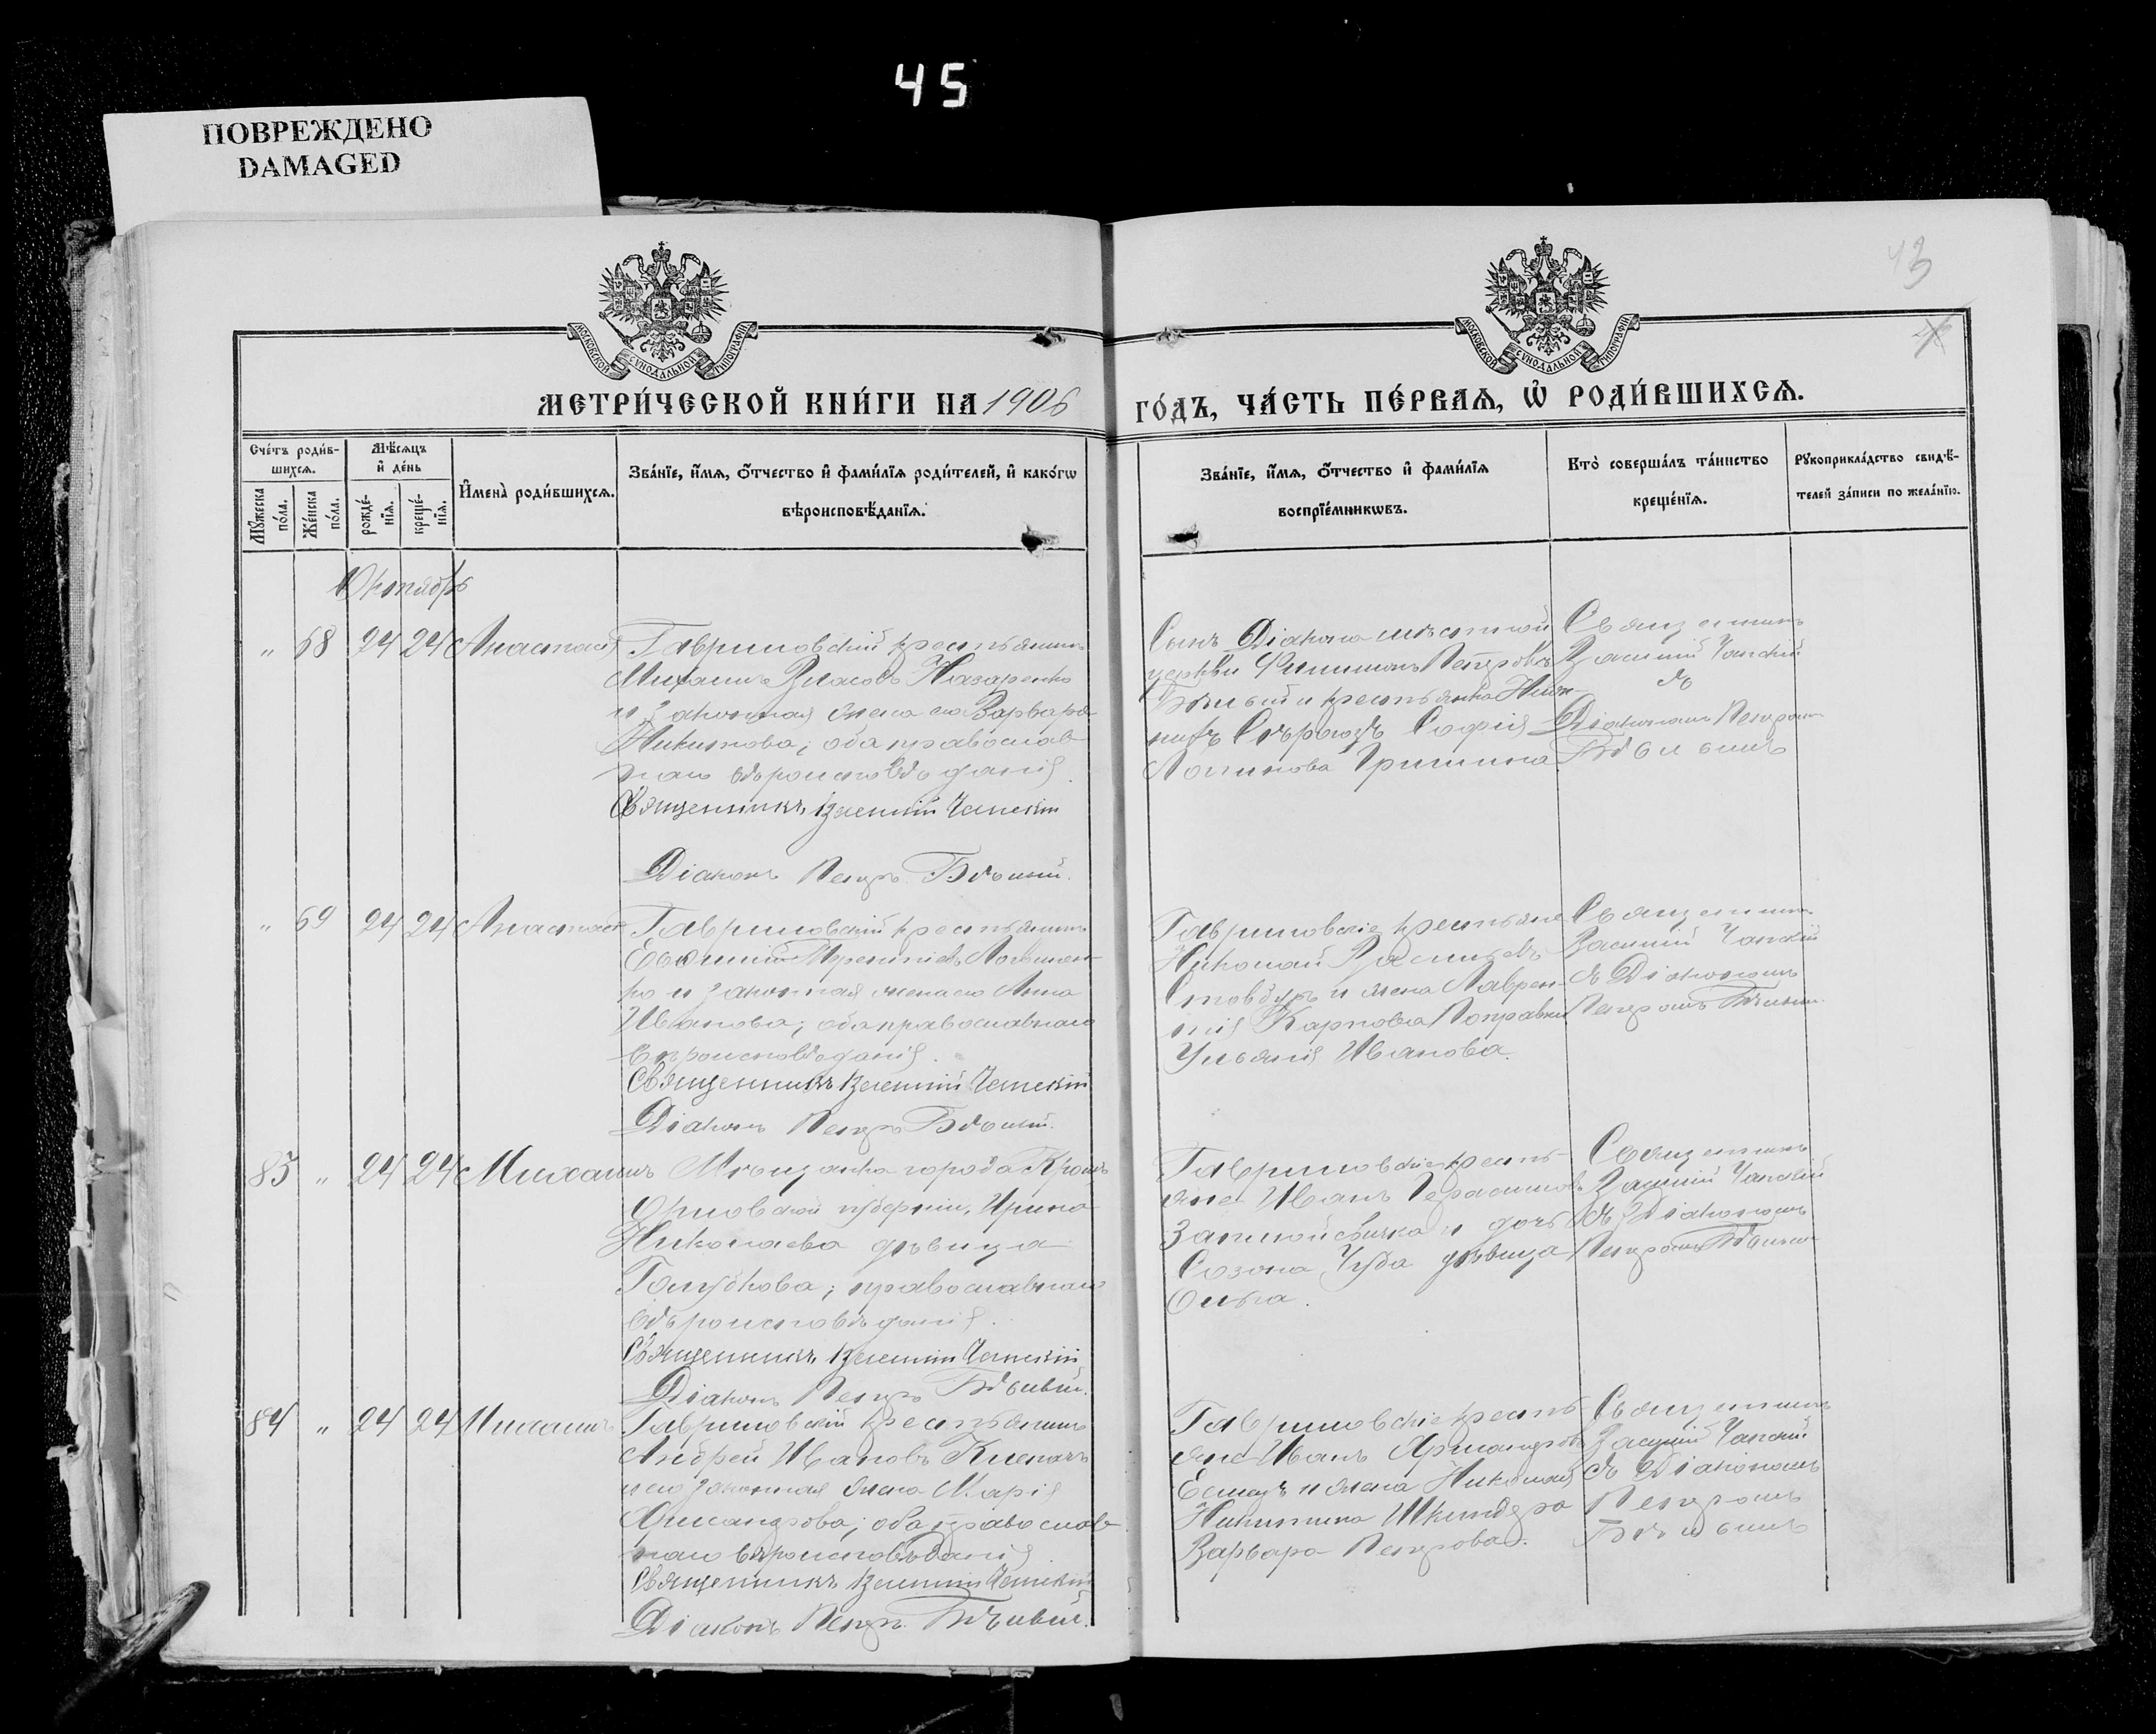 45
ПОВРЕЖДЕНО
DAMAGED
43
МОСКОВСКОЙ СѴНОДАЛЬНОЙ ТИПОГРАФІИ
МОСКОВСКОЙ СѴНОДАЛЬНОЙ ТИПОГРАФІИ
МЕТРИ́ЧЕСКОЙ КНИ́ГИ НА 1906 ГО́ДЪ, ЧА́СТЬ ПЕ́РВАѦ, Ѡ҆ РОДИ́ВШИХСѦ.
Сче́тъ роди́в-
шихсѧ.
Мꙋ́жеска по́ла.
Же́нска по́ла.
Мѣ́сѧцъ
и҆ де́нь
рожде́-
нїѧ.
креще́-
нїѧ.
И҆мена̀ роди́вшихсѧ.
Зва́нїе, и҆́мѧ, ѻ҆́тчество и҆ фами́лїѧ роди́телей, и҆ како́гѡ
вѣроисповѣ́данїѧ.
Зва́нїе, и҆́мѧ, ѻ҆́тчество и҆ фами́лїѧ
воспрїе́мникѡвъ.
Кто̀ соверша́лъ та́инство
креще́нїѧ.
Рꙋкоприкла́дство свидѣ́-
телей за́писи по жела́нїю.
Октябрь
" 68 24 24 Анастасія
Гавриловскій крестьянинъ
Михаилъ Власовъ Назаренко
и законная жена его Варвара
Никитова; оба православ-
наго вѣроисповѣданія.
Священникъ Василій Чапскій
Діаконъ Петръ Бѣлый.
Сынъ Діакона мѣстной
церкви Филимонъ Петровъ
Бѣлый и крестьянка
Софія
Логинова Гришина
Священникъ
Василій Чапскій
съ
Діакономъ Петромъ
Бѣлымъ
" 69 24 24 Анастасія
Гавриловскій крестьянинъ
Евфимій
и законная жена его Анна
Иванова; оба православнаго
вѣроисповѣданія.
Священникъ Василій Чапскій
Діаконъ Петръ Бѣлый.
Гавриловскіе крестьяне
Николай Васильевъ
и жена Лаврен-
тія Карпова
Ульянія Иванова.
Священникъ
Василій Чапскій
съ Діакономъ
Петромъ Бѣлымъ
83 " 24 24 Михаилъ
Мѣщанка города Кромъ
Орловской губерніи, Ирина
Николаева дѣвица
Голубкова; православнаго
вѣроисповѣданія.
Священникъ Василій Чапскій
Діаконъ Петръ Бѣлый.
Гавриловскіе кресть-
яне Иванъ Герасимовъ
и дочь
Созона Чуба дѣвица
Ольга.
Священникъ
Василій Чапскій
съ Діакономъ
Петромъ Бѣлымъ
84 " 24 24 Михаилъ
Гавриловскій крестьянинъ
Андрей Ивановъ
и его законная жена Марія
оба православ-
наго вѣроисповѣданія.
Священникъ Василій Чапскій
Діаконъ Петръ Бѣлый.
Гавриловскіе кресть-
яне Иванъ
и жена Николая
Никитина
Варвара Петрова.
Священникъ
Василій Чапскій
съ Діакономъ
Петромъ
Бѣлымъ